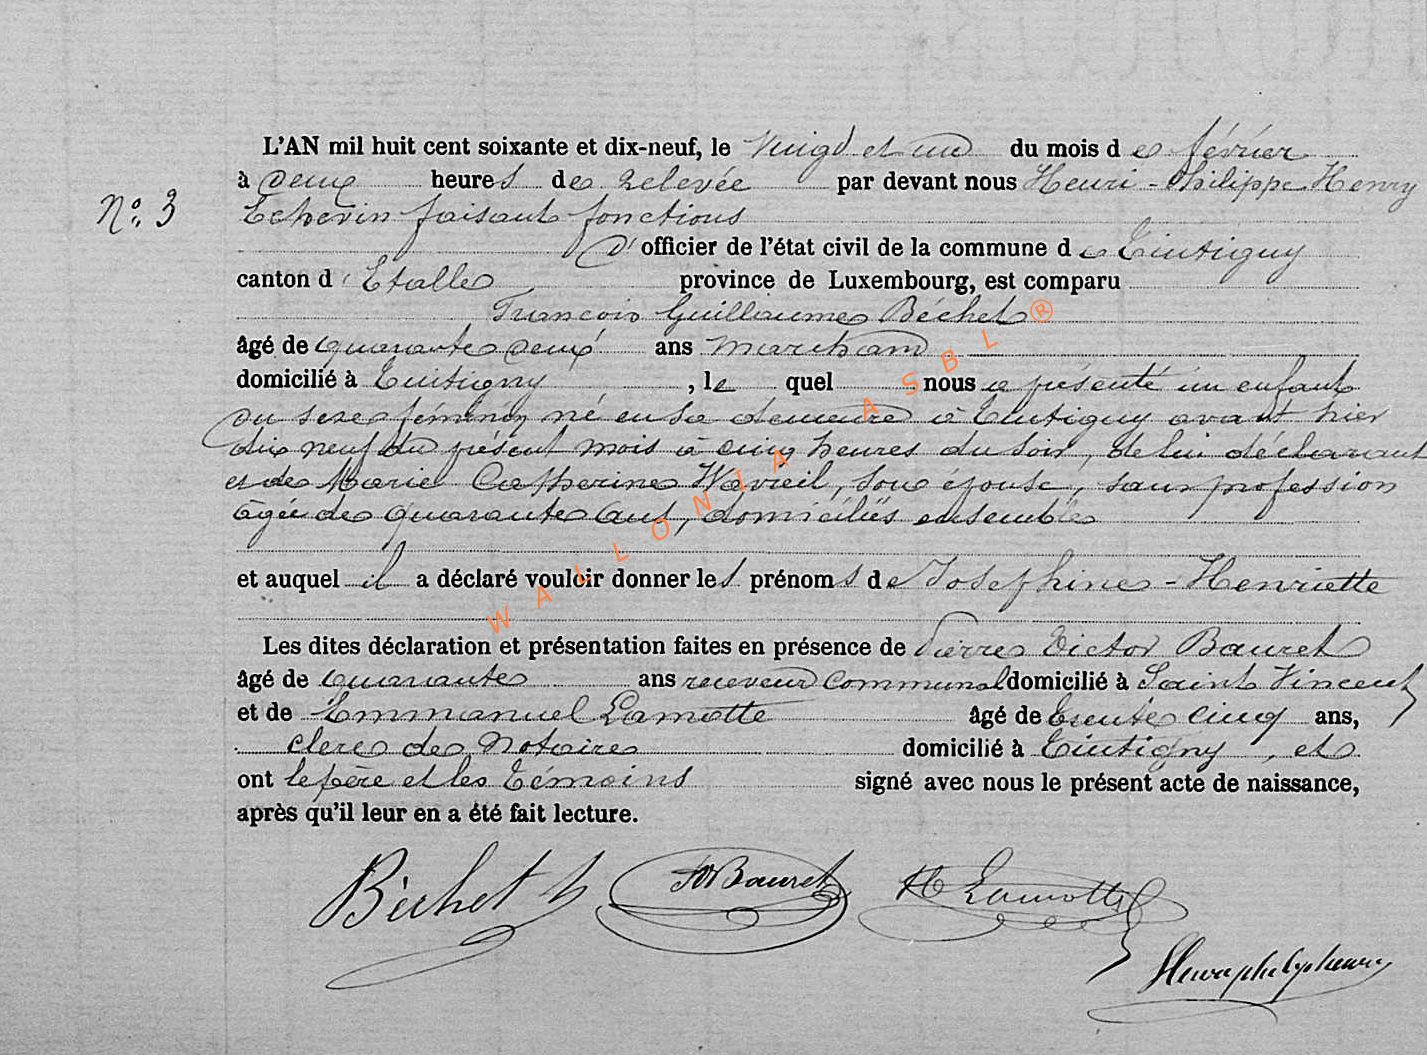 L'AN mil huit cent soixante et dix-neuf, le Vingt et un du mois de février
à deux heures de relevée par devant nous Henri-Philippe Henry
N° 3 Echevin faisant fonctions
d'officier de l'état civil de la commune de Tintigny
canton d'Etalle province de Luxembourg, est comparu
François Guillaume Béchet
âgé de quarante deux ans marchand
domicilié à Tintigny, le quel nous a présenté un enfant
du sexe féminin né en sa demeure à Tintigny avant hier
dix neuf du présent mois à cinq heures du soir, de lui déclarant
et de Marie Catherine Wavreil, son épouse, sans profession
âgée de quarante ans, domiciliés ensemble
et auquel il a déclaré vouloir donner les prénoms de Josephine-Henriette
Les dites déclaration et présentation faites en présence de Pierre Victor Bauret
âgé de quarante ans receveur communal domicilié à Saint Vincent
et de Emmanuel Lamotte âgé de trente cinq ans,
clerc de Notaire domicilié à Tintigny, et
ont le père et les témoins signé avec nous le présent acte de naissance,
après qu'il leur en a été fait lecture.
Béchet Bauret Lamotte
WALLONIA ASBL ®